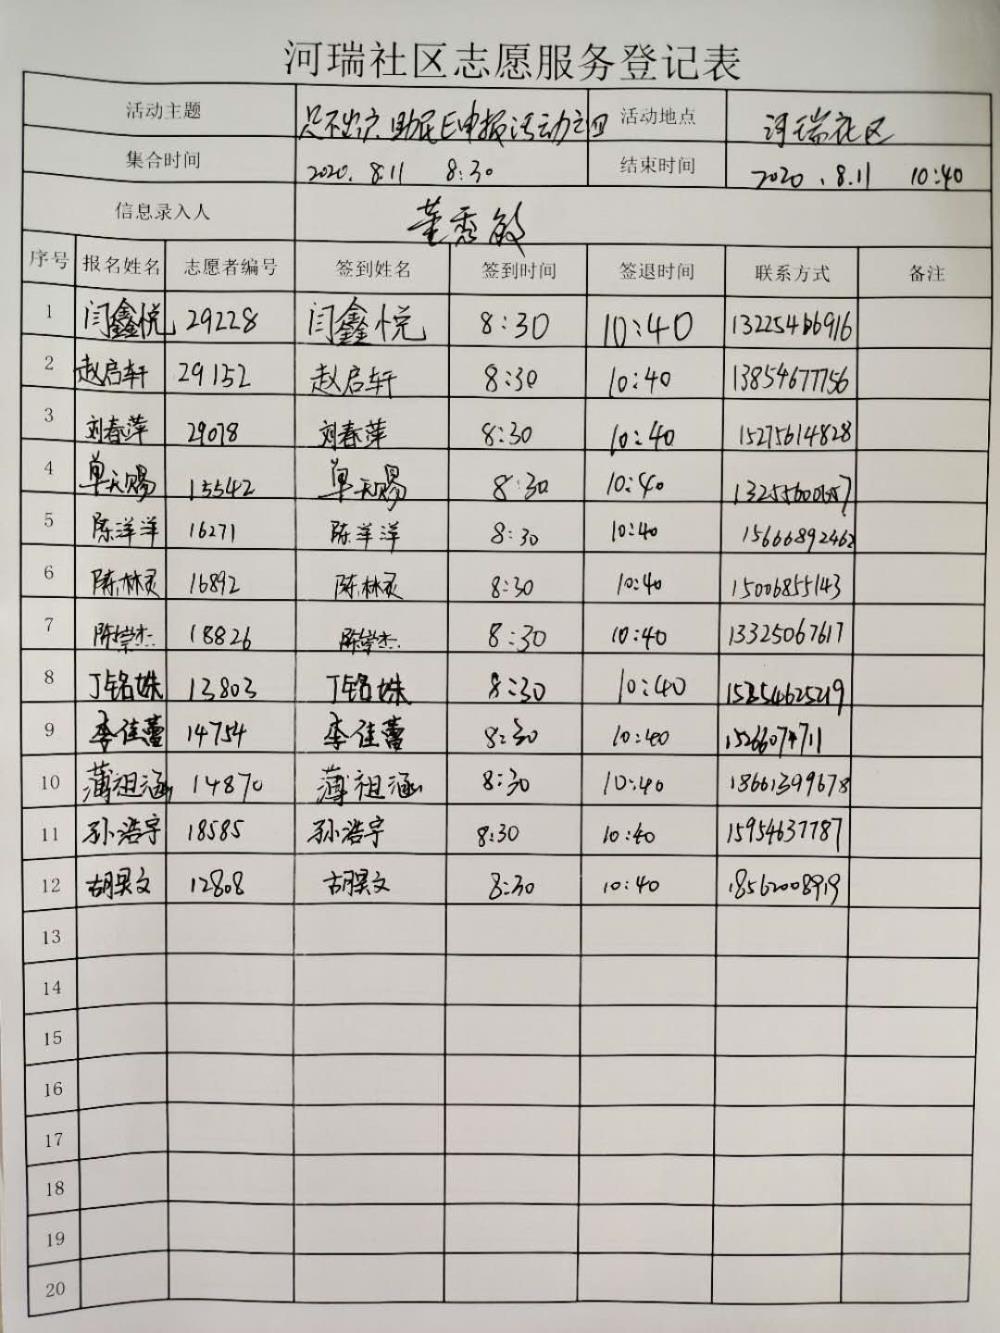 河瑞社区志愿服务登记表
活动主题 足不出户 助民E申报活动之四 活动地点 河瑞社区
集合时间 2020.8.11 8:30 结束时间 2020.8.11 10:40
信息录入人 董秀敏
序号 报名姓名 志愿者编号 签到姓名 签到时间 签退时间 联系方式 备注
1 闫鑫悦 29228 闫鑫悦 8:30 10:40
2 赵启轩 29152 赵启轩 8:30 10:40 13854677756
3 刘春萍 29078 刘春萍 8:30 10:40 15275614828
4 单天赐 15542 单天赐 8:30 10:40
5 陈洋洋 16271 陈洋洋 8:30 10:40 15666892462
6 陈林灵 16892 陈林灵 8:30 10:40 15006855143
7 陈学杰 18826 陈学杰 8:30 10:40 13325067617
8 丁铭姝 13803 丁铭姝 8:30 10:40
9 李佳蕾 14754 李佳蕾 8:30 10:40
10 薄祖涵 14870 薄祖涵 8:30 10:40 18661399678
11 孙浩宇 18585 孙浩宇 8:30 10:40 15954637787
12 胡昊文 12808 胡昊文 8:30 10:40 18562008919
13
14
15
16
17
18
19
20